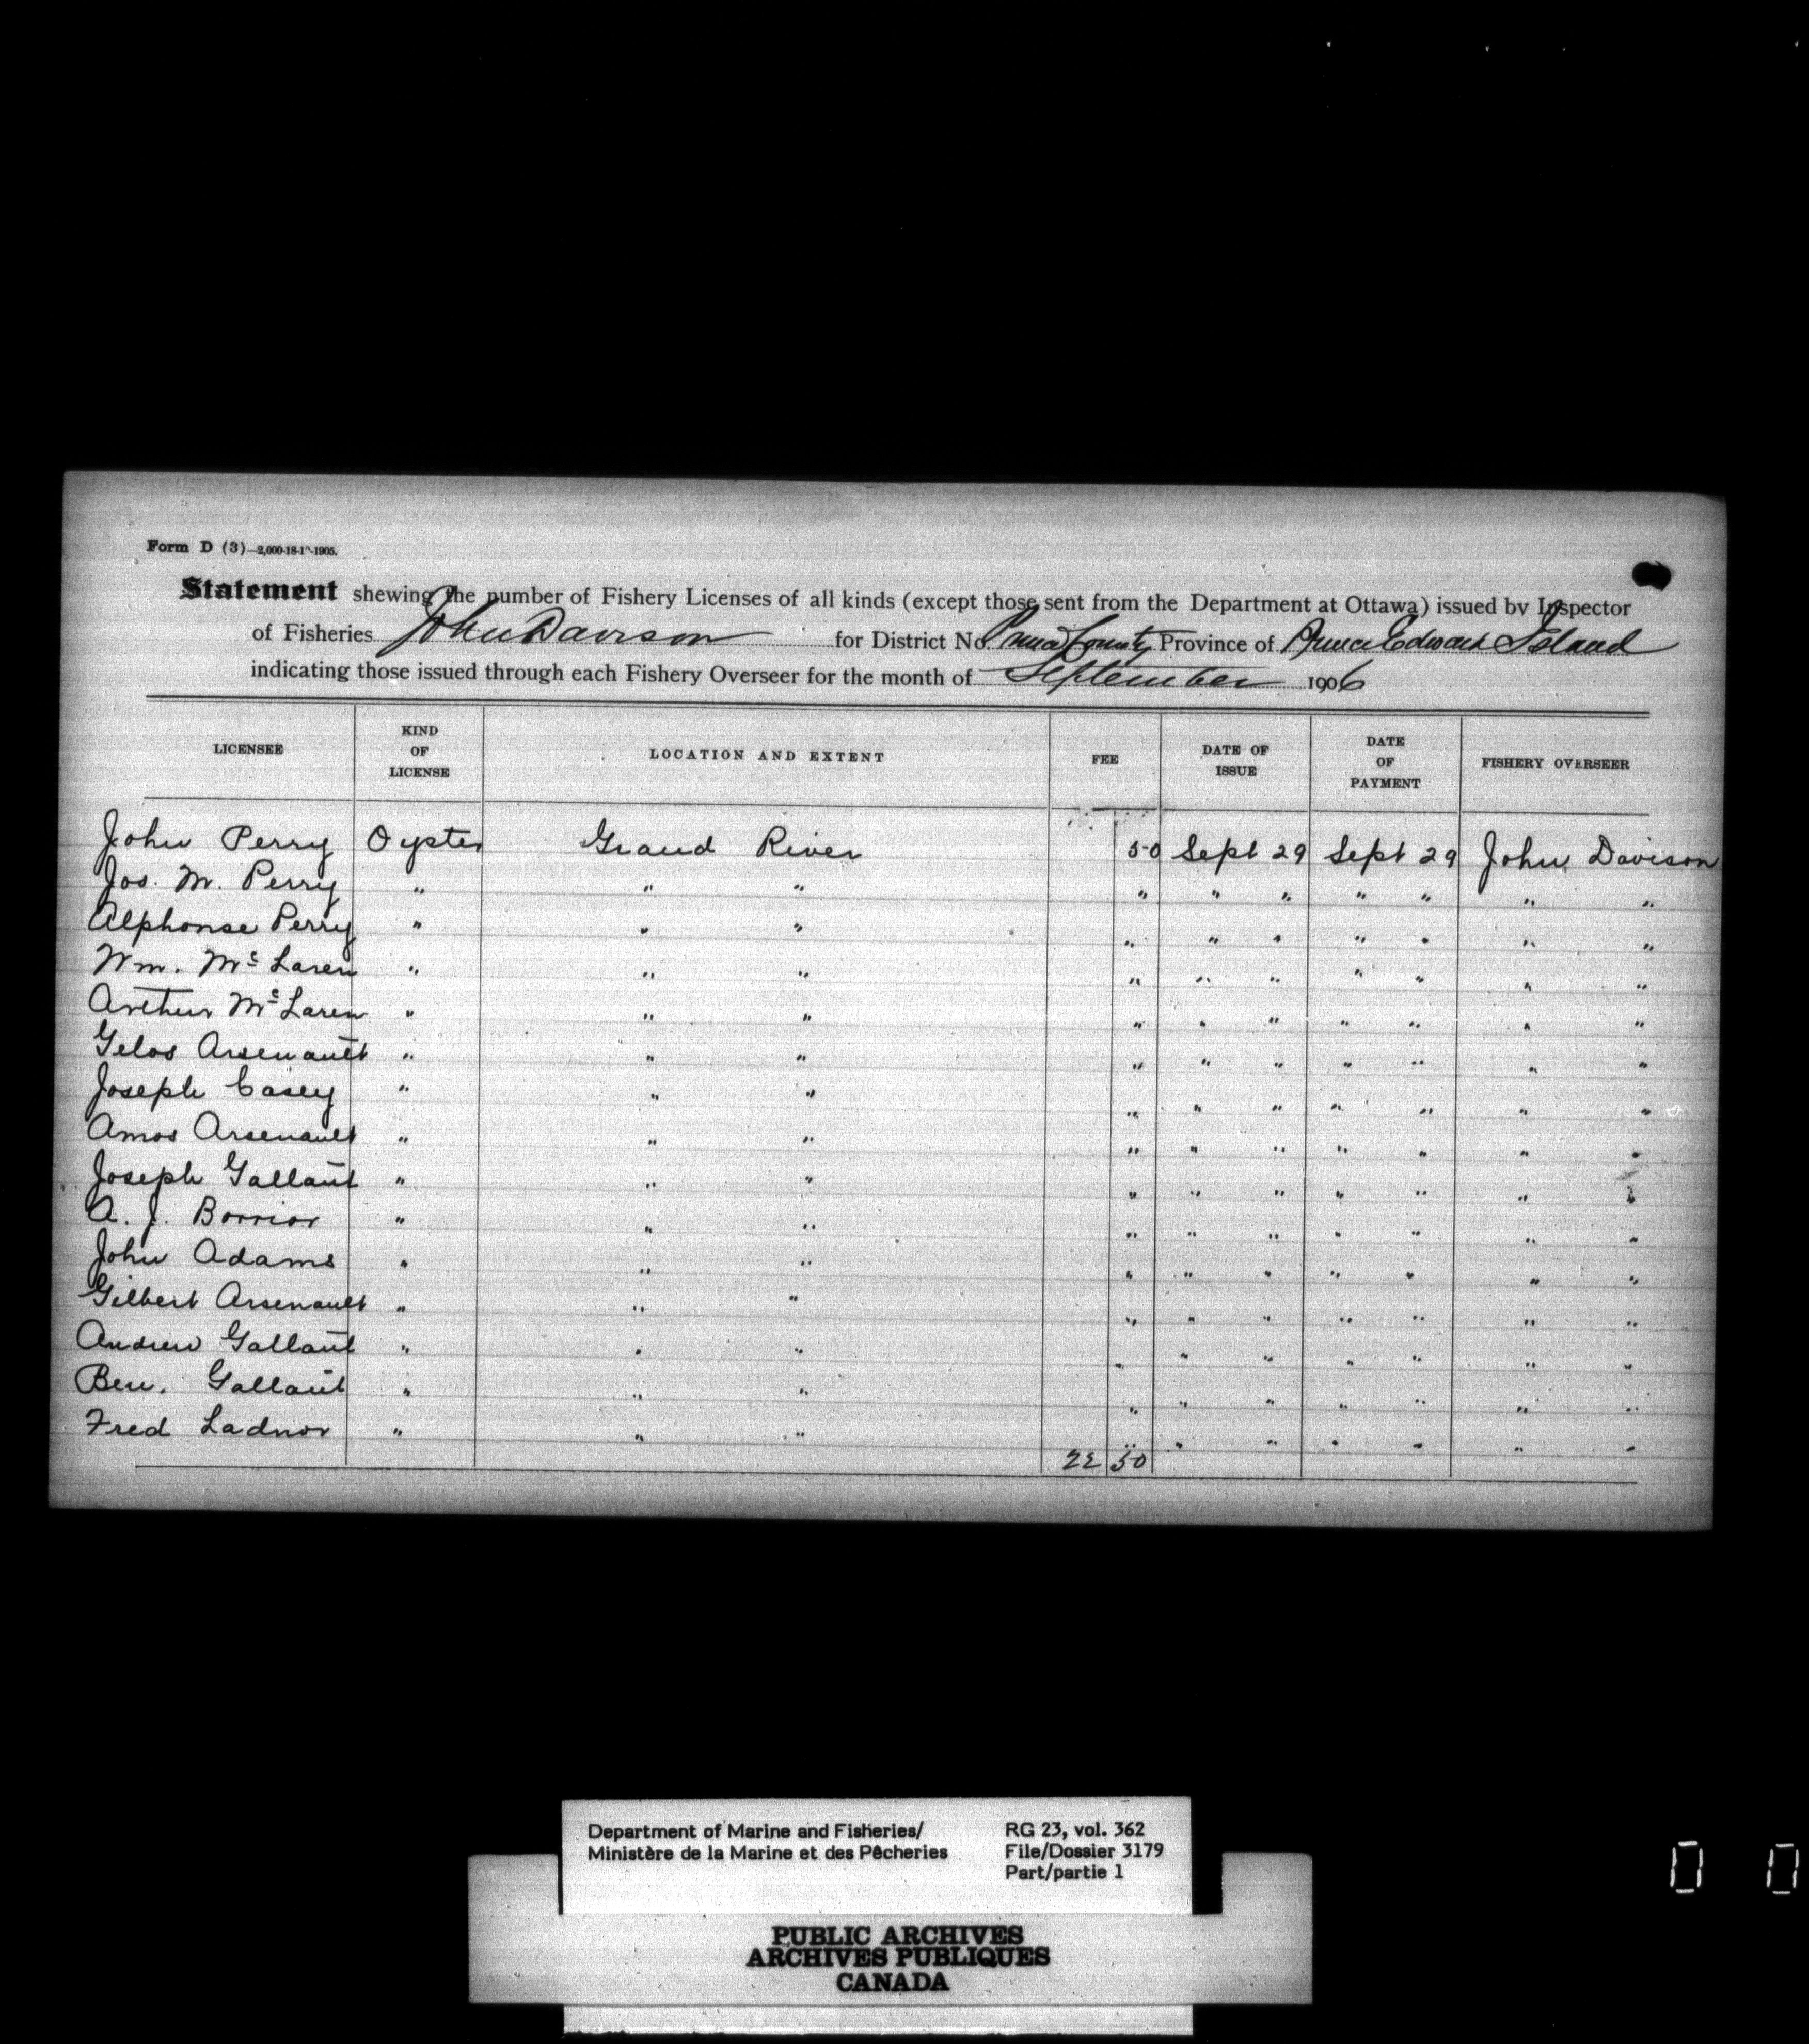 Form D (3)—2,000-18-1^-1905.
Statement shewing the number of Fishery Licenses of all kinds (except those sent from the Department at Ottawa) issued by Inspector
of Fisheries John Davison for District No. Prince County Province of Prince Edward Island
indicating those issued through each Fishery Overseer for the month of September 1906
LICENSEE KIND OF LICENSE LOCATION AND EXTENT FEE DATE OF ISSUE DATE OF PAYMENT FISHERY OVERSEER
John Perry Oyster Grand River 50 Sept 29 Sept 29 John Davison
Jos. M. Perry " " " " " " " " " "
Alphonse Perry " " " " " " " " " "
Wm. Mc Laren " " " " " " " " " "
Arthur Mc Laren " " " " " " " " " "
Gelas Arsenault " " " " " " " " " "
Joseph Casey " " " " " " " " " "
Amos Arsenault " " " " " " " " " "
Joseph Gallant " " " " " " " " " "
A. J. Borrior " " " " " " " " " "
John Adams " " " " " " " " " "
Gilbert Arsenault " " " " " " " " " "
Andrew Gallant " " " " " " " " " "
Ben. Gallant " " " " " " " " " "
Fred Ladnor " " " " " " " " " "
22 50
Department of Marine and Fisheries/
Ministère de la Marine et des Pêcheries
RG 23, vol. 362
File/Dossier 3179
Part/partie 1
PUBLIC ARCHIVES
ARCHIVES PUBLIQUES
CANADA
0 0